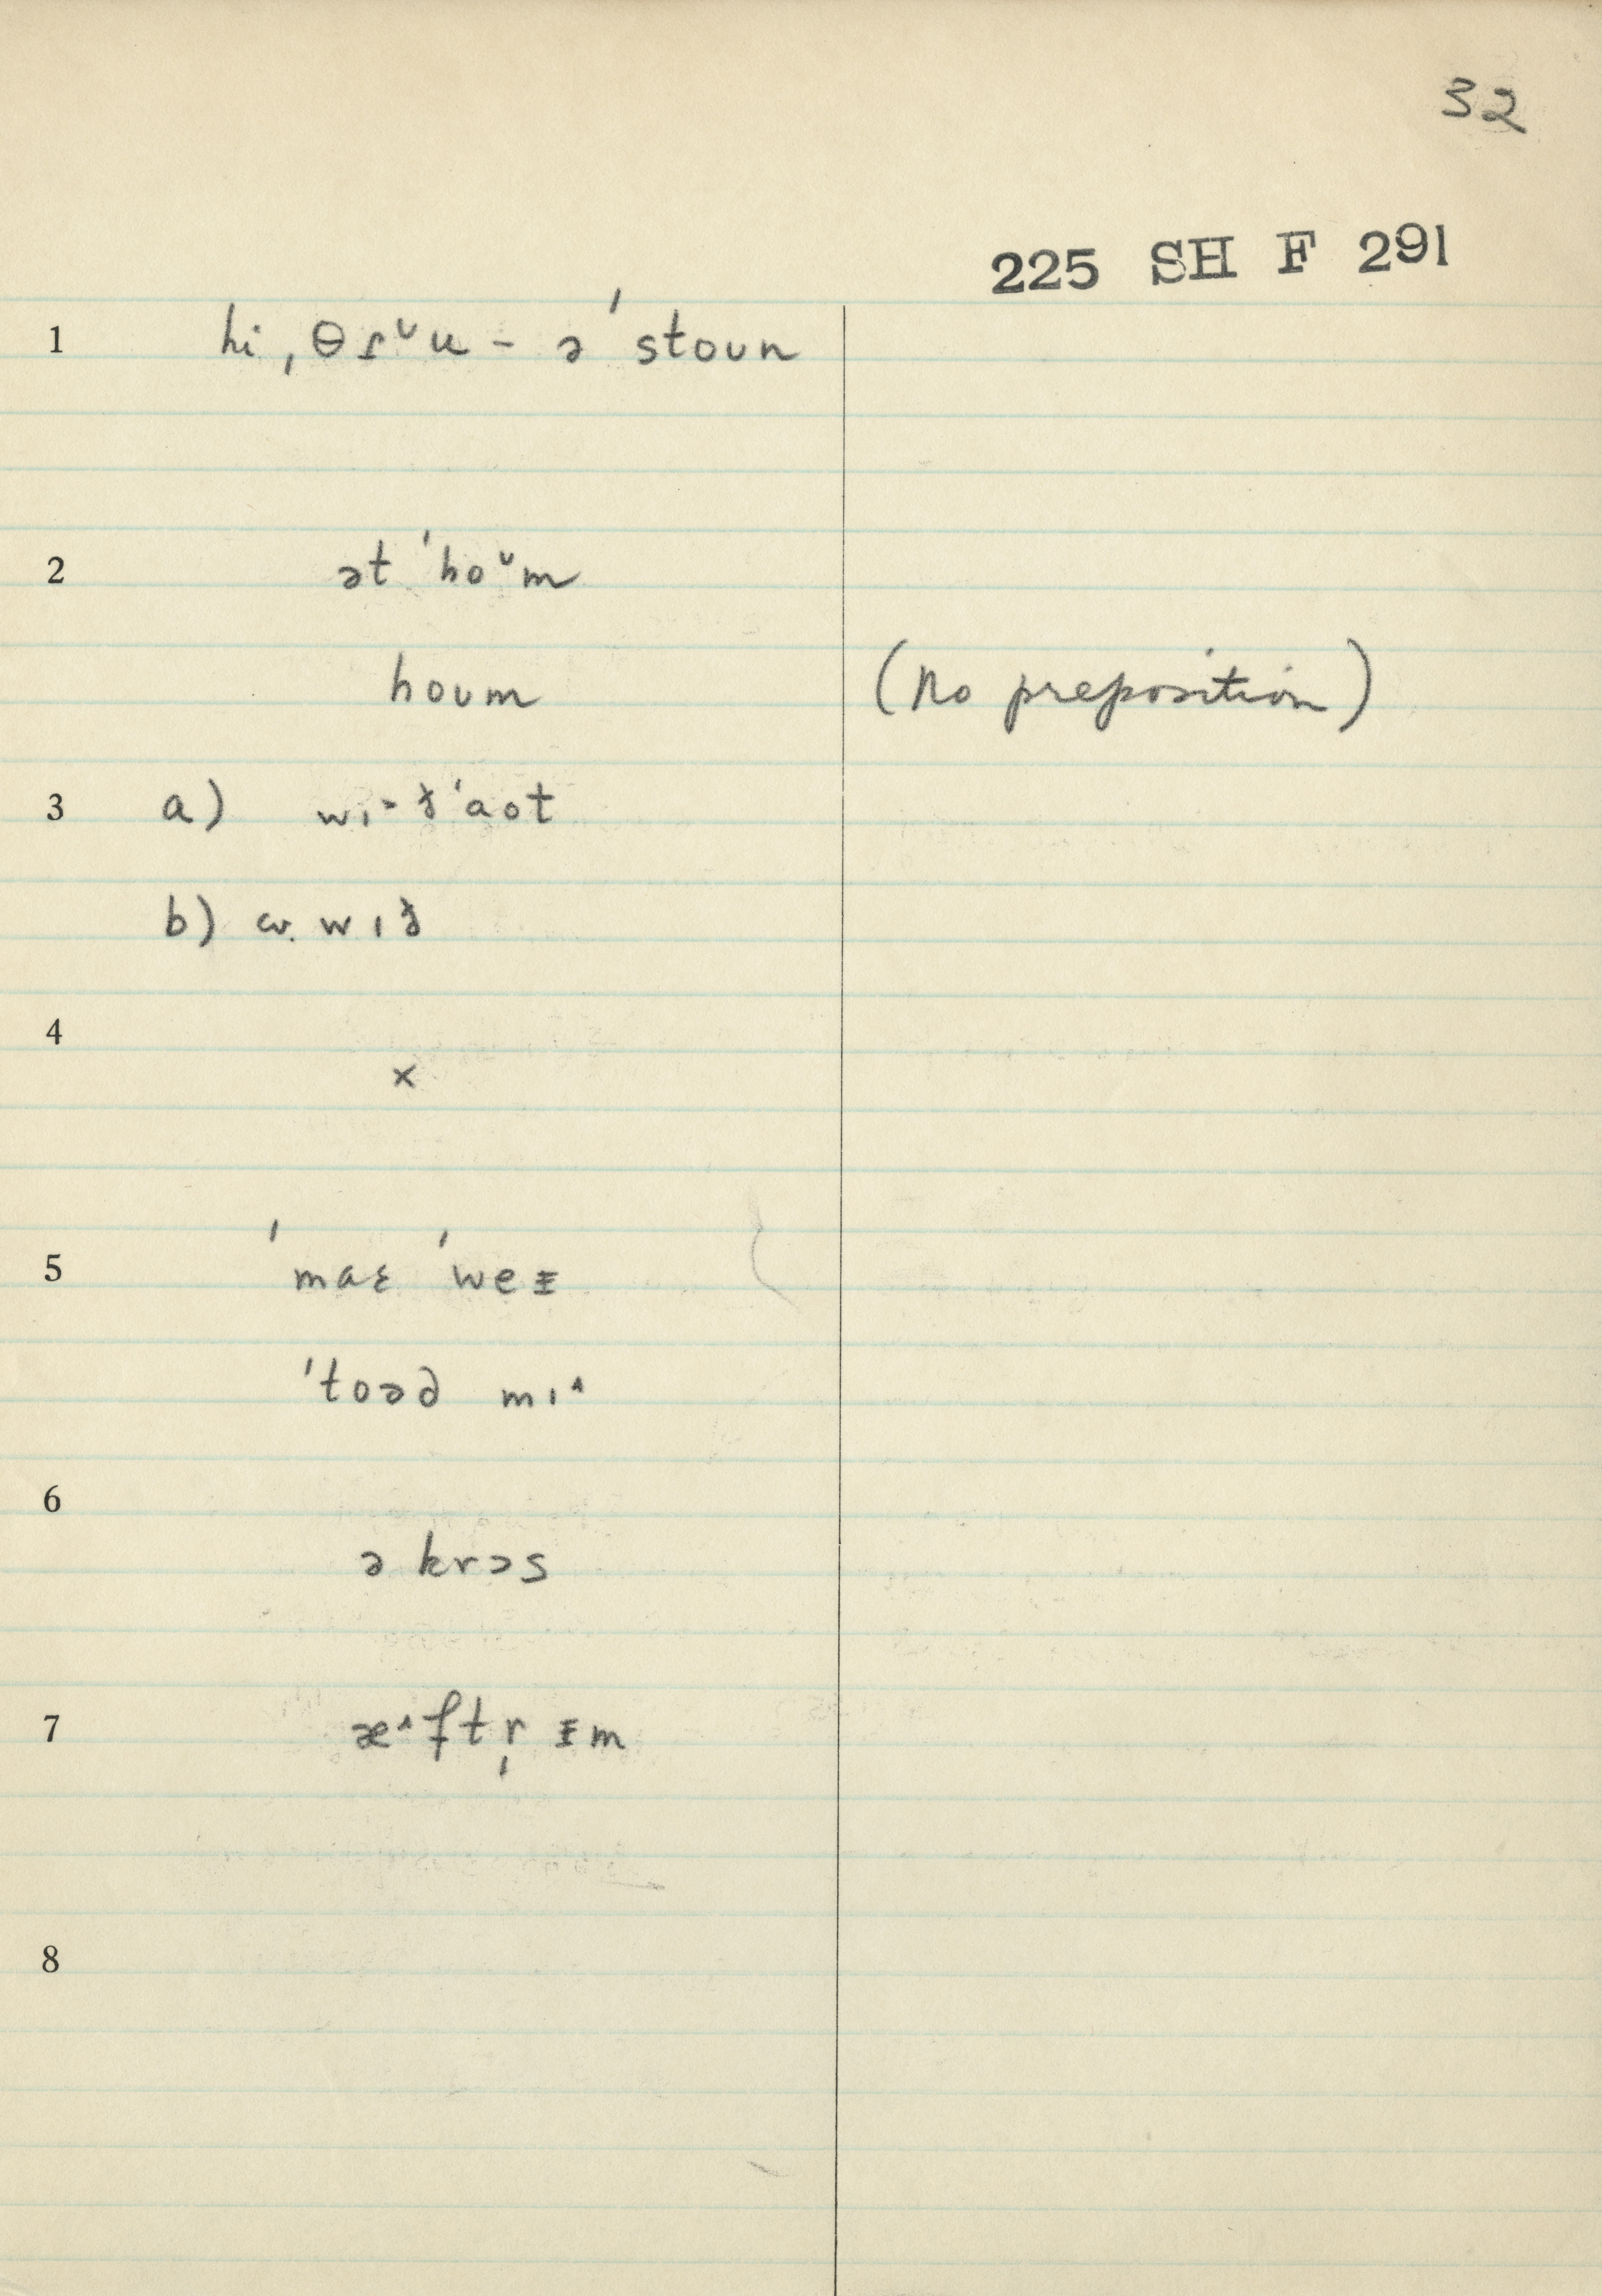 32
225 SH F 291
1 hi ˌθɾᵕu - ə ˈstoun
2 ət ˈhoᵕm
houm (no preposition)
3 a) wɪ˃ðˈaot
b) cv. wɪð
4 ×
5 ˈmaɛ ˈweᵻ
ˈtoəd mɪ˄
6 ə krɔs
7 æ˄ftr̩ ᵻm
8